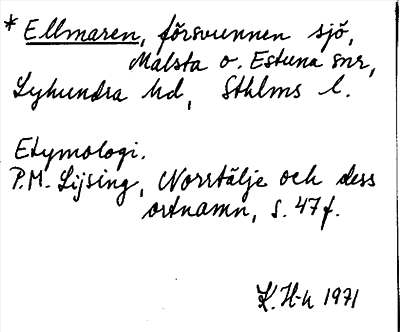 * Ellmaren, försvunnen sjö,
Malsta o. Estuna snr,
Lyhundra hd, Sthlms l.
Etymologi.
P.M. Lijsing, Norrtälje och dess
ortnamn, s. 47 f.
K. H-n 1971